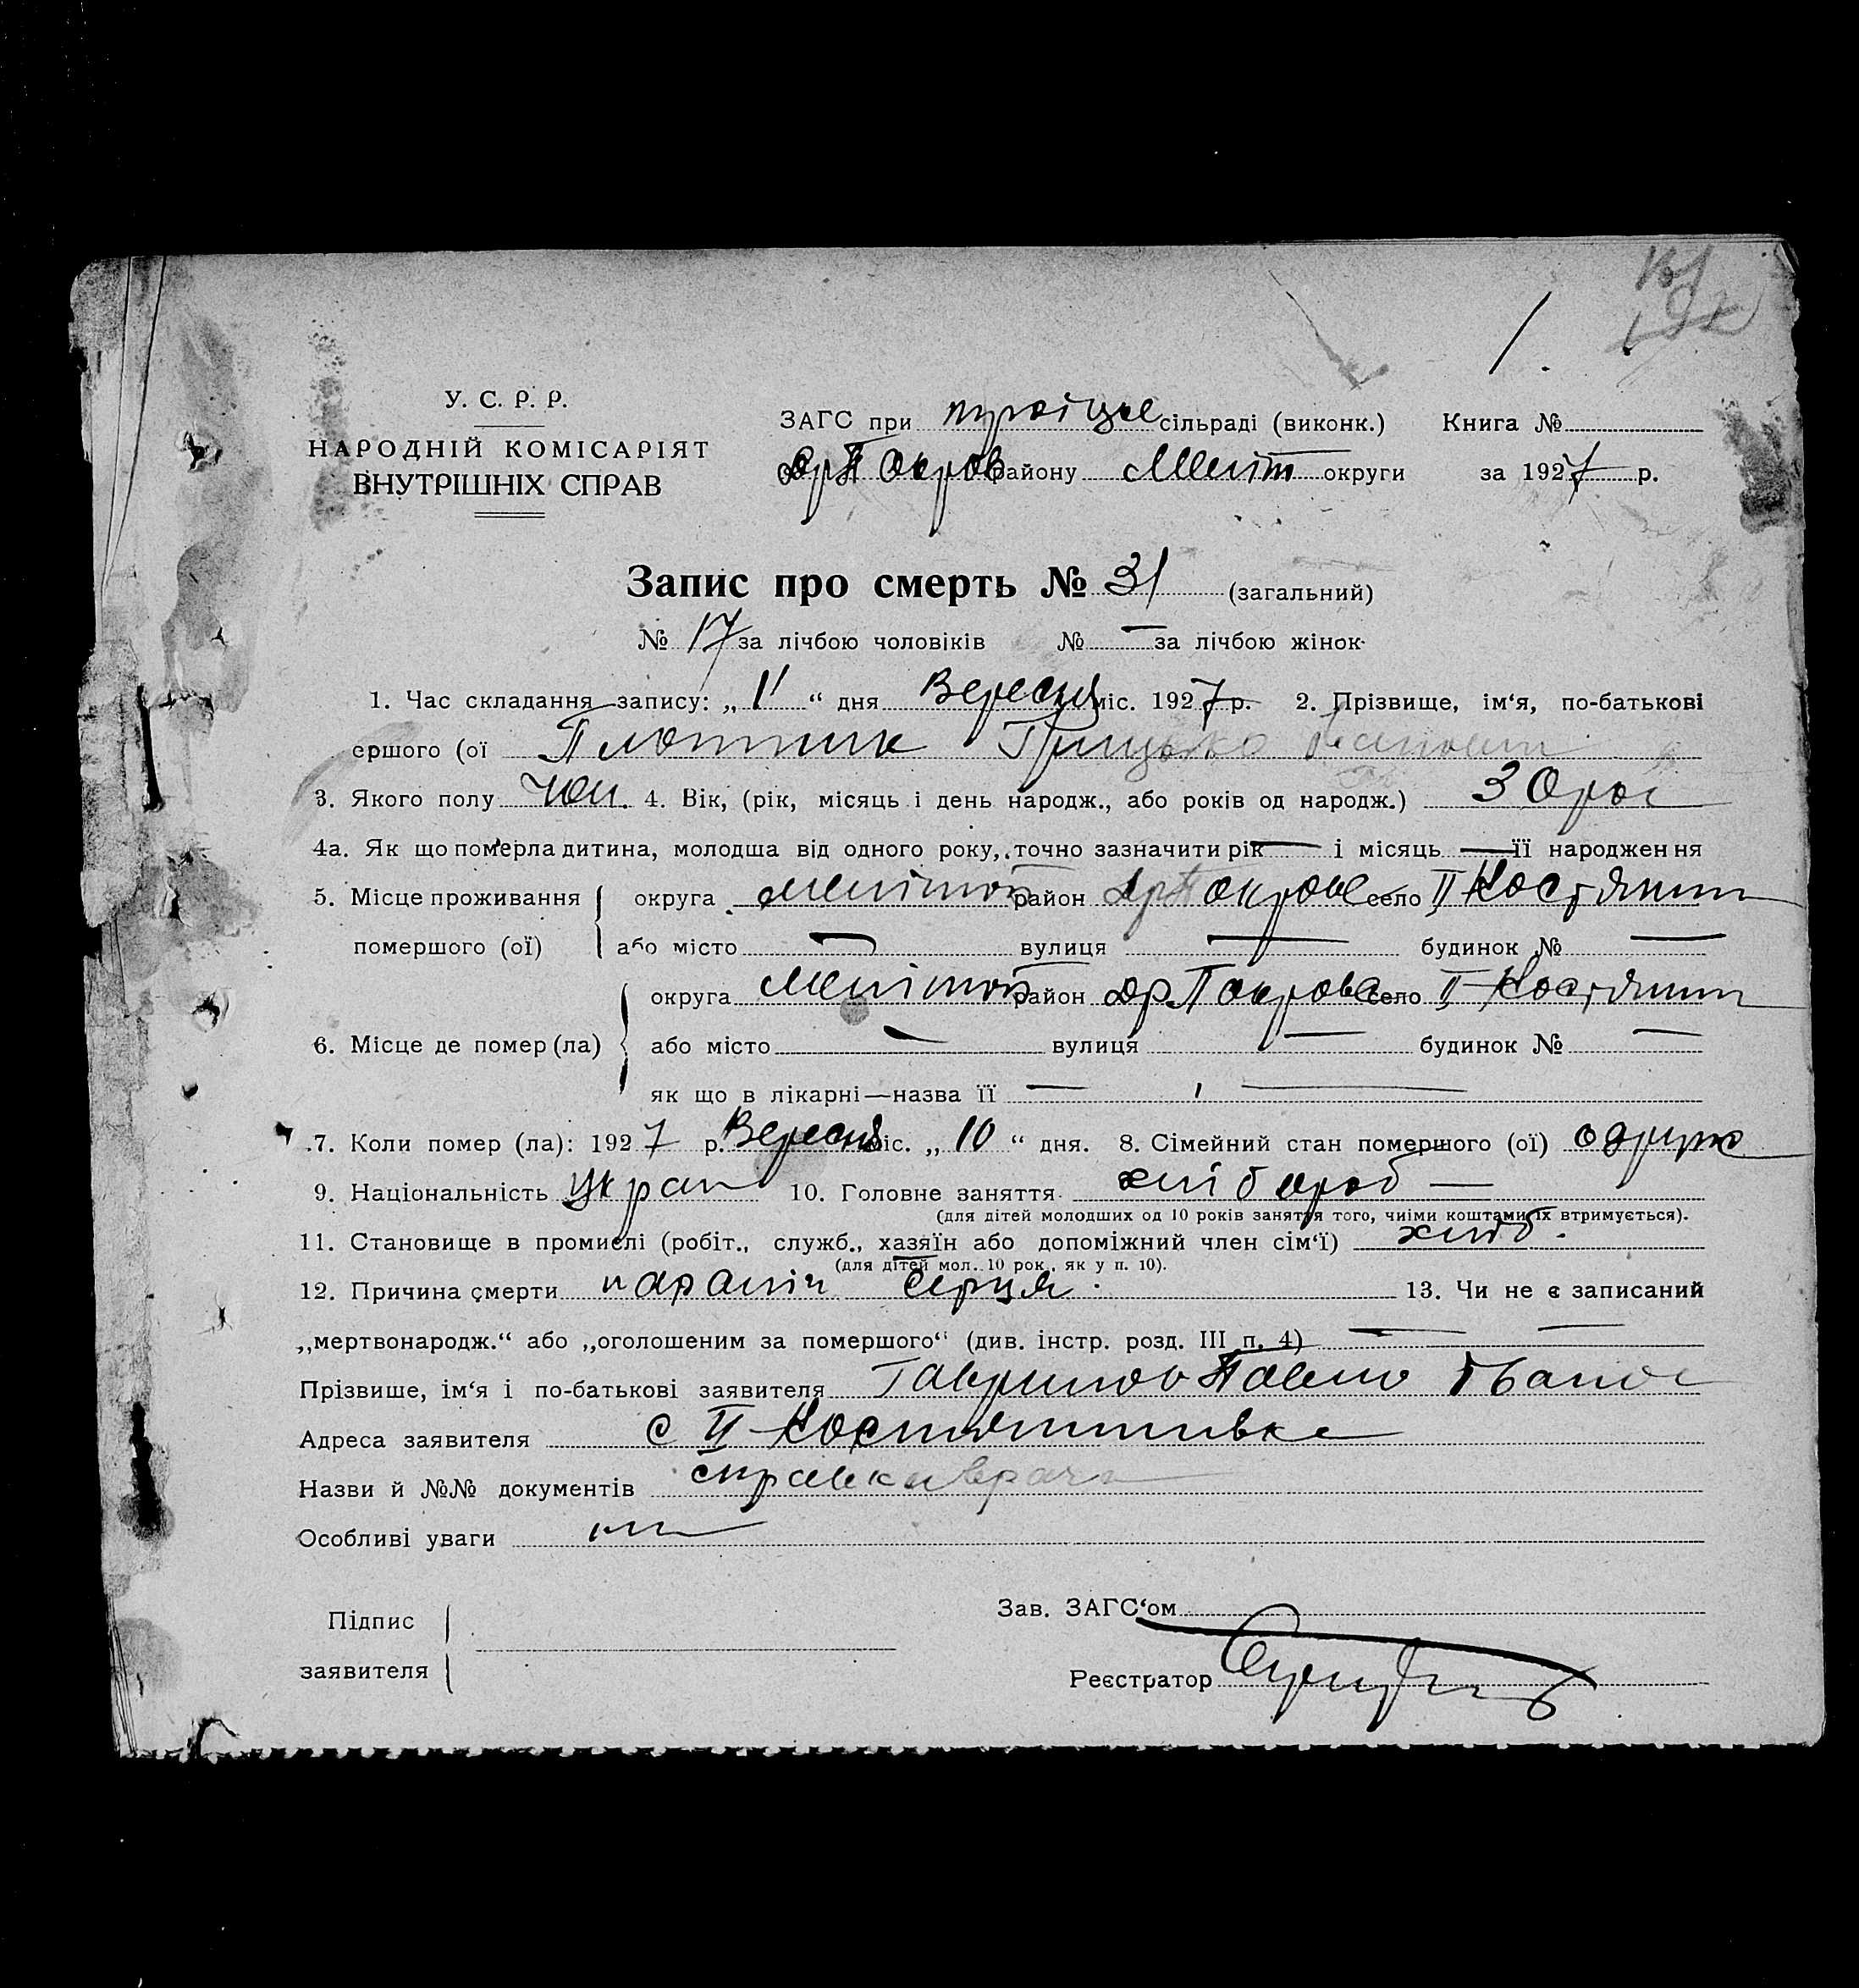 1.
У. С. Р. Р.
НАРОДНІЙ КОМІСАРІЯТ
ВНУТРІШНІХ СПРАВ
ЗАГС при троіцьк сільраді (виконк.) Книга №
дрПокров району Меліт округи за 1927 р.
Запис про смерть № 31 (загальний)
№ 17 за лічбою чоловіків № — за лічбою жінок
1. Час складання запису: „ 11 “ дня Вересня міс. 1927 р. 2. Прізвище, ім‘я, по-батькові
ершого (ої Плотник Грицько
3. Якого полу чол. 4. Вік, (рік, місяць і день народж., або років од народж.) 30 рок
4а. Як що померла дитина, молодша від одного року, точно зазначити рік — і місяць — її народження
5. Місце проживання округа Мелітоп район дрПокровс село ІІ Костянти
помершого (ої) або місто — вулиця — будинок № —
округа Мелітоп район дрПокровс село ІІ Костянти
6. Місце де помер (ла) або місто — вулиця — будинок № —
як що в лікарні—назва її — —
7. Коли помер (ла): 1927 р. Вересня міс. „ 10 “ дня. 8. Сімейний стан помершого (ої) одруж
9. Національність Украп 10. Головне заняття хлібороб —
(для дітей молодших од 10 років заняття того, чиіми коштами їх втримується).
11. Становище в промислі (робіт., служб., хазяїн або допоміжний член сім‘ї) хліб.
(для дітей мол. 10 рок., як у п. 10).
12. Причина смерти параліч серця. 13. Чи не є записаний
„мертвонародж.“ або „оголошеним за помершого“ (див. інстр. розд. III п. 4) — —
Прізвише, ім‘я і по-батькові заявителя Гаврилов Павло Іванов
Адреса заявителя с ІІ-Костянтинівка
Назви й №№ документів справка врача
Особливі уваги
Підпис
заявителя
Зав. ЗАГС‘ом
Реєстратор